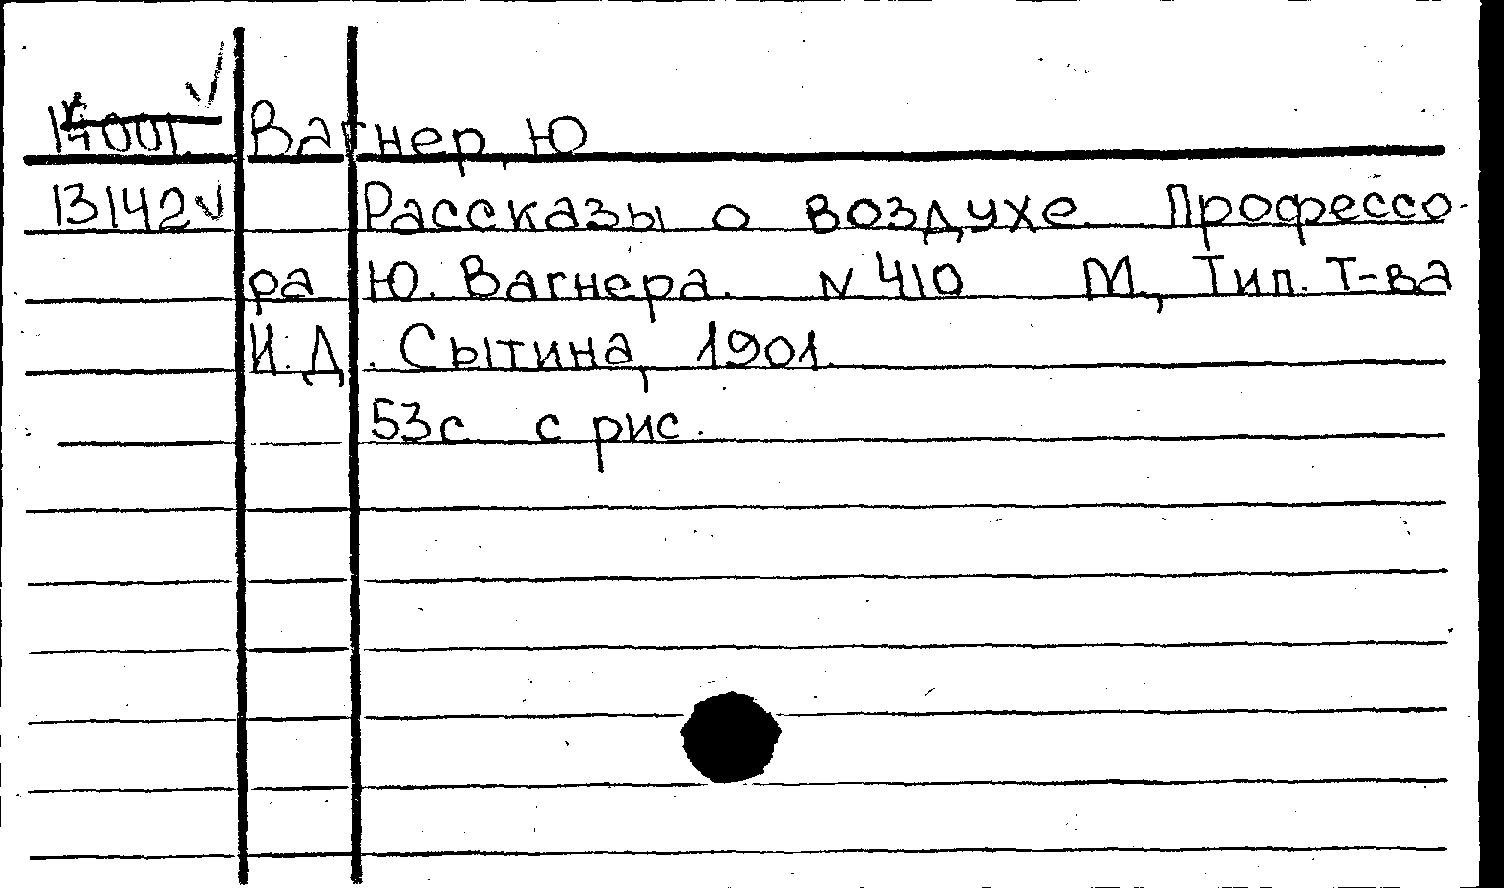 Вагнер, Ю
13142 Рассказы о воздухе. Профессо-
ра Ю. Вагнера. N 410 М., Тип. Т-ва
И. Д. Сытина, 1901.
53с с рис.